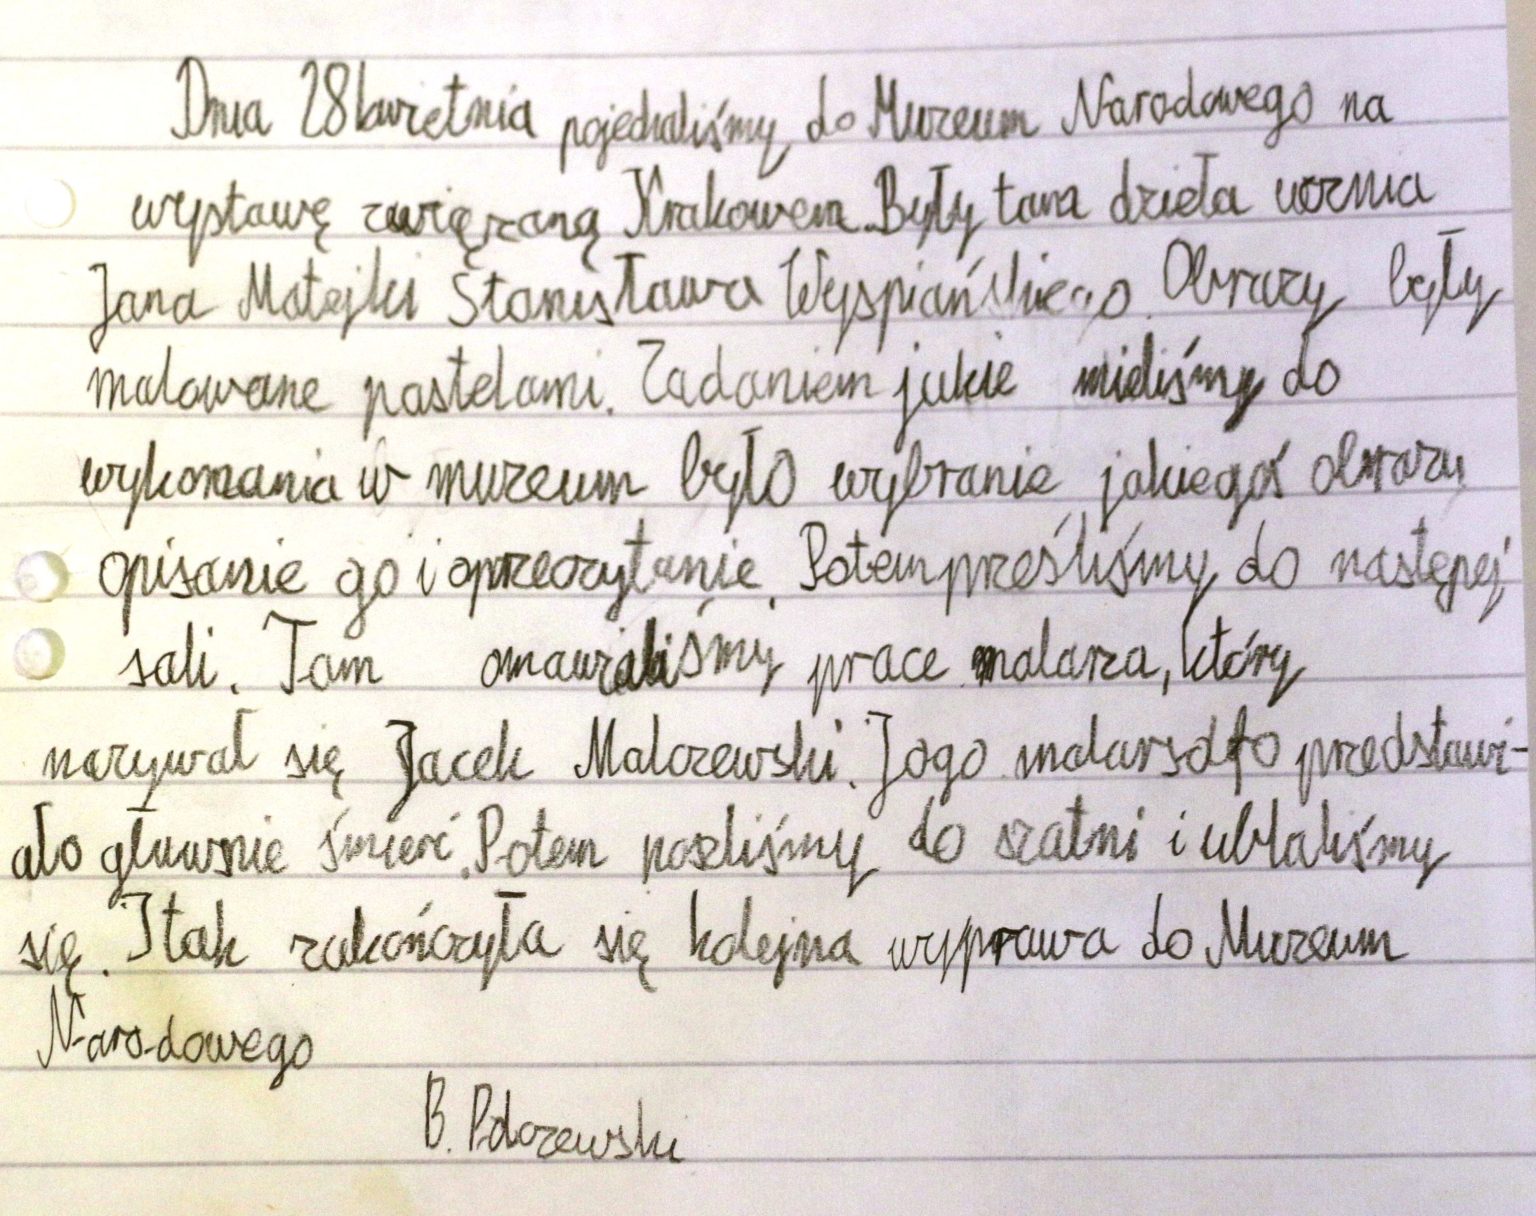 Dnia 28 kwietnia pojechaliśmy do Muzeum Narodowego na
wystawę związaną Krakowem. Były tam dzieła ucznia
Jana Matejki Stanisława Wyspiańskiego. Obrazy były
malowane pastelami. Zadaniem jakie mieliśmy do
wykonania w muzeum było wybranie jakiegoś obrazu
opisanie go i oprzeczytanie. Potem prześliśmy do następej
sali. Tam omawialiśmy prace malarza, który
nazywał się Jacek Malczewski. Jego przedstawi-
ało głównie śmierć. Potem poszliśmy do szatni i ublaliśmy
się. I tak zakończyła się kolejna wyprawa do Muzeum
Narodowego
B.